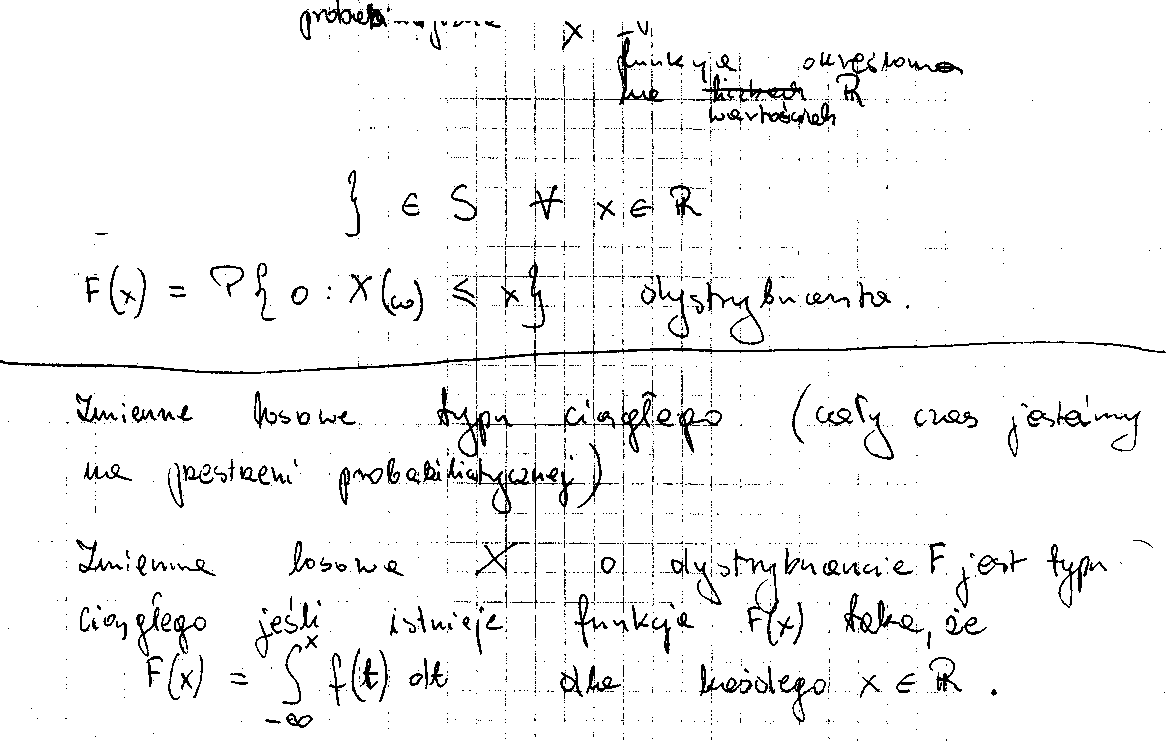 X
funkcja określona
na liczbach ℝ
wartościach
} ∈ S ∀ x ∈ ℝ
F(x) = P{ o : X(ω) ≤ x} dystrybuanta.
Zmienne losowe typu ciągłego (cały czas jesteśmy
na przestrzeni probabilistycznej)
Zmienna losowa X o dystrybuancie F jest typu
ciągłego jeśli istnieje funkcja F(x) taka, że
F(x) = ∫_{-∞}^{x} f(t) dt dla każdego x ∈ ℝ.